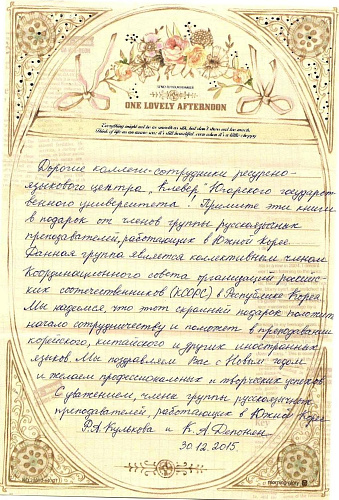 ONE LOVELY AFTERNOON
Everything might not be as smooth as silk, but don't stress out too much.
Think of life as an ocean wave: it's still beautiful even when it's a little choppy
Дорогие коллеги-сотрудники ресурсно-
языкового центра „Клевер" Югорского государст-
венного университета! Примите эти книги
в подарок от членов группы русскоязычных
преподавателей, работающих в Южной Корее.
Данная группа является коллективным членом
Координационного совета организаций российс-
ких соотечественников (КСОРС) в Республике Корея.
Мы надеемся, что этот скромный подарок положит
начало сотрудничеству и поможет в преподавании
корейского, китайского и других иностранных
языков. Мы поздравляем Вас с Новым годом
и желаем профессиональных и творческих успехов.
С уважением, члены группы русскоязычных
преподавателей, работающих в Южной Корее
Р.А. Кулькова и К.А. Депонен.
30.12.2015.